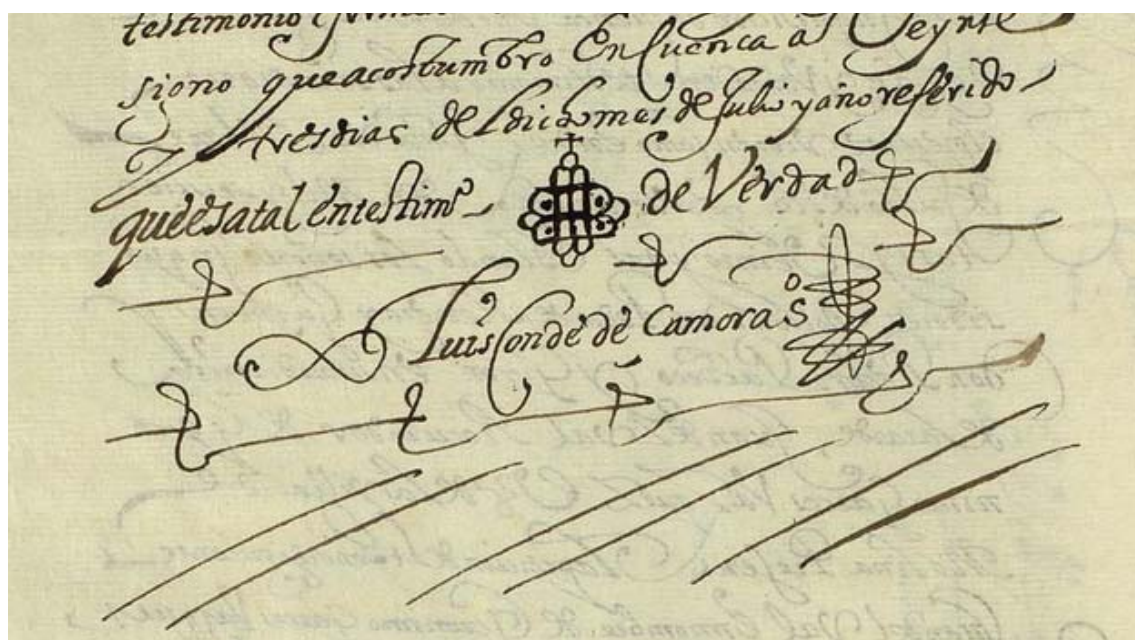 testimonio
signo que acostumbro En Cuenca a Veynte
tres dias del dicho mes de Julio y año referido
que esatal en testimº de Verdad
Luis Conde de Camora Sº